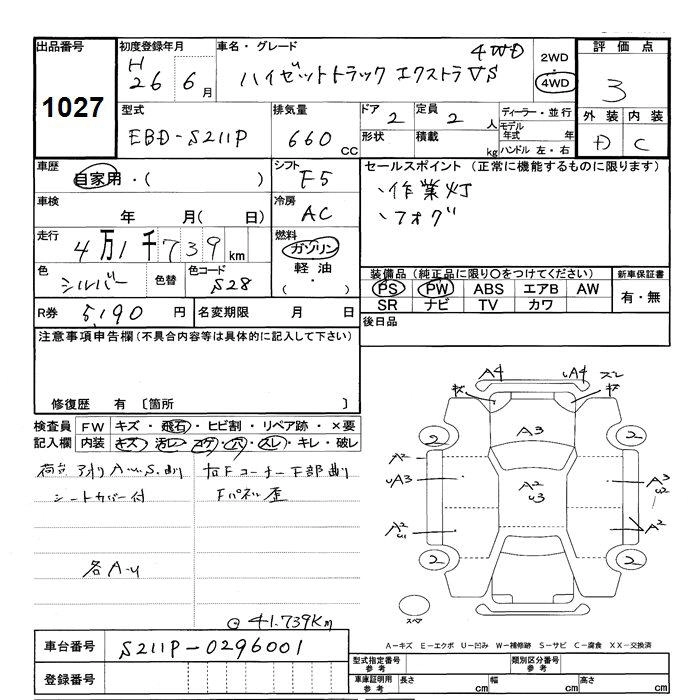 出品番号
1027
初度登録年月
H
26 6月
車名・グレード
4WD
ハイゼットトラック エクストラVS
2WD
4WD
評価点
3
外装 内装
D C
型式
EBD-S211P
排気量
660 CC
ドア 2
形状
定員 2 人
積載 kg
ディーラー・並行
モデル年式 年
ハンドル 左・右
車歴
自家用・( )
シフト
F5
セールスポイント (正常に機能するものに限ります)
、作業灯
、フォグ
車検
年 月( 日)
冷房
AC
走行
4万1千739km
燃料
ガソリン
軽油
( ・ )
色
シルバー
色替
色コード
S28
装備品 (純正品に限り〇をつけてください)
PS PW ABS エアB AW
SR ナビ TV カワ
新車保証書
有・無
R券 5,190 円
名変期限 月 日
後日品
注意事項申告欄 (不具合内容等は具体的に記入して下さい)
修復歴 有 〔箇所 〕
検査員 FW キズ・飛石・ヒビ割・リペア跡・×要
記入欄 内装 キズ・汚レ・コゲ・穴・スレ・キレ・破レ
荷台アオリA.u.S.凹
シートカバー付
各A-u
右Fコーナー下部凹
Fパネル歪
41.739Km
A4
uA4
スレ
キズ
キズ
A3
2
2
A2
uA3
A2
u3
A3
u2
A2
u1
A2
2
2
スペア
A-キズ E-エクボ U-凹み W-補修跡 S-サビ C-腐食 XX-交換済
車台番号 S211P-0296001
登録番号
型式指定番号
参考
類別区分番号
参考
車庫証明用
参考
長さ cm
幅 cm
高さ cm